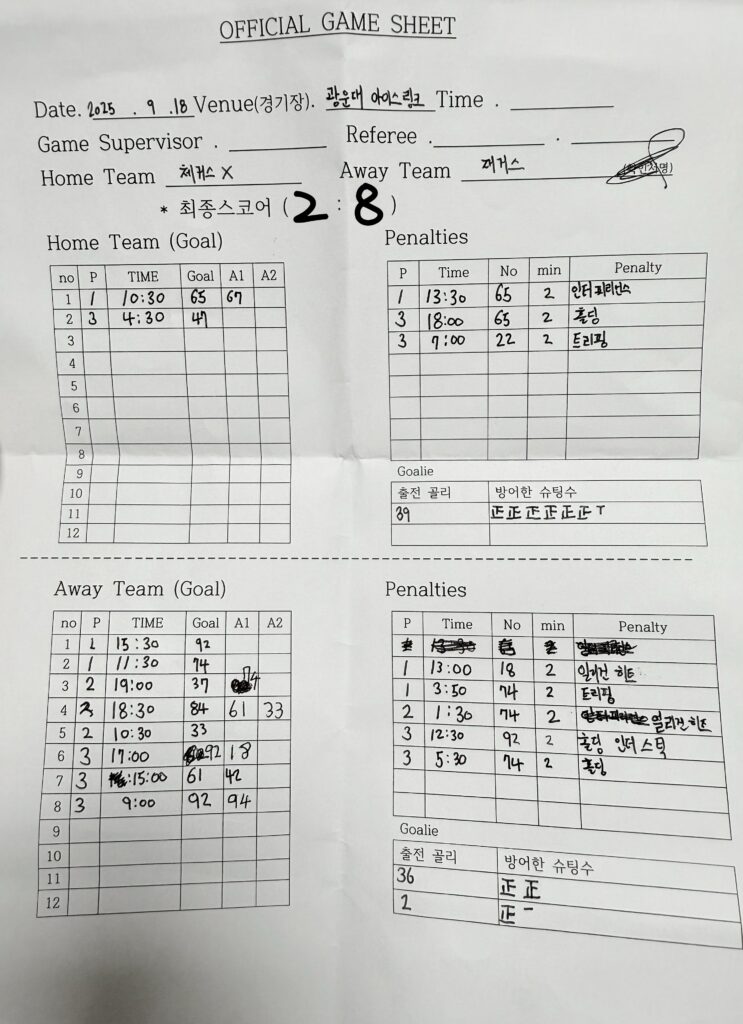 OFFICIAL GAME SHEET
Date. 2025 . 9 .18 Venue(경기장). 광운대 아이스링크 Time .
Game Supervisor . Referee . .
Home Team 체커스 X Away Team 재거스
* 최종스코어 ( 2 : 8 )
Home Team (Goal)
no P TIME Goal A1 A2
1 1 10:30 65 67
2 3 4:30 47
3
4
5
6
7
8
9
10
11
12
Penalties
P Time No min Penalty
1 13:30 65 2 인터피러런스
3 18:00 65 2 홀딩
3 7:00 22 2 트리핑
Goalie
출전 골리 방어한 슈팅수
39 正正正正正正丅
Away Team (Goal)
no P TIME Goal A1 A2
1 1 15:30 92
2 1 11:30 74
3 2 19:00 37 74
4 2 18:30 84 61 33
5 2 10:30 33
6 3 17:00 92 18
7 3 15:00 61 42
8 3 9:00 92 94
9
10
11
12
Penalties
P Time No min Penalty
1 13:00 18 2 일리건 히트
1 3:50 74 2 트리핑
2 1:30 74 2 일리건 히트
3 12:30 92 2 홀딩 인더 스틱
3 5:30 74 2 홀딩
Goalie
출전 골리 방어한 슈팅수
36 正正
2 正一